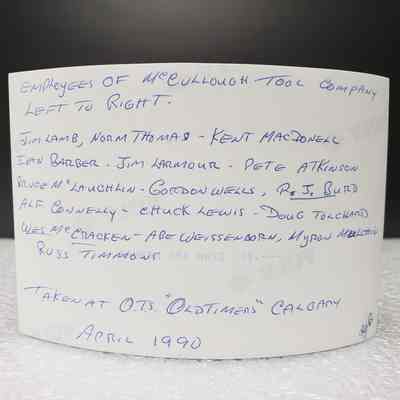 EMPLOYEES OF McCULLOUGH TOOL COMPANY
LEFT TO RIGHT.
JIM LAMB, NORM THOMAS - KENT MACDONELL
IVAN BARBER - JIM LARMOUR - PETE ATKINSON
BRUCE McLAUGHLIN - GORDON WELLS, R. J. BURD
ALF CONNELLY - CHUCK LEWIS - DOUG TOLCHARD
WES McCRACKEN - ABE WEISSENBORN, MYRON
RUSS TIMMONS
TAKEN AT O.T.S. "OLDTIMERS" CALGARY
APRIL 1990